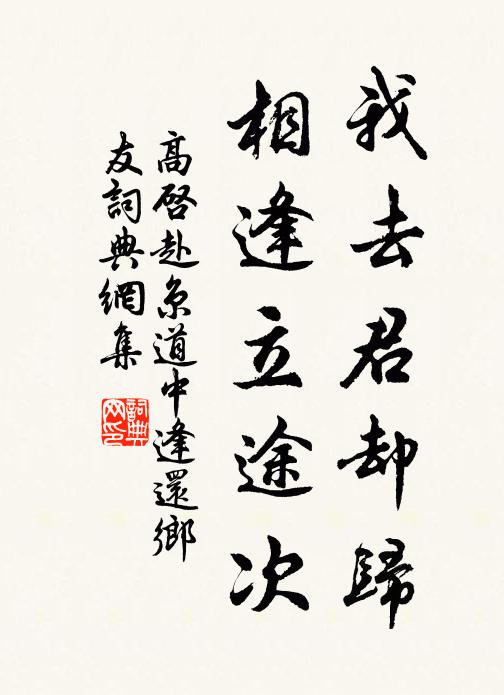 我去君却歸
相逢立途次
高啓赴京道中逢還鄉
友詞典網集
詞典
网印